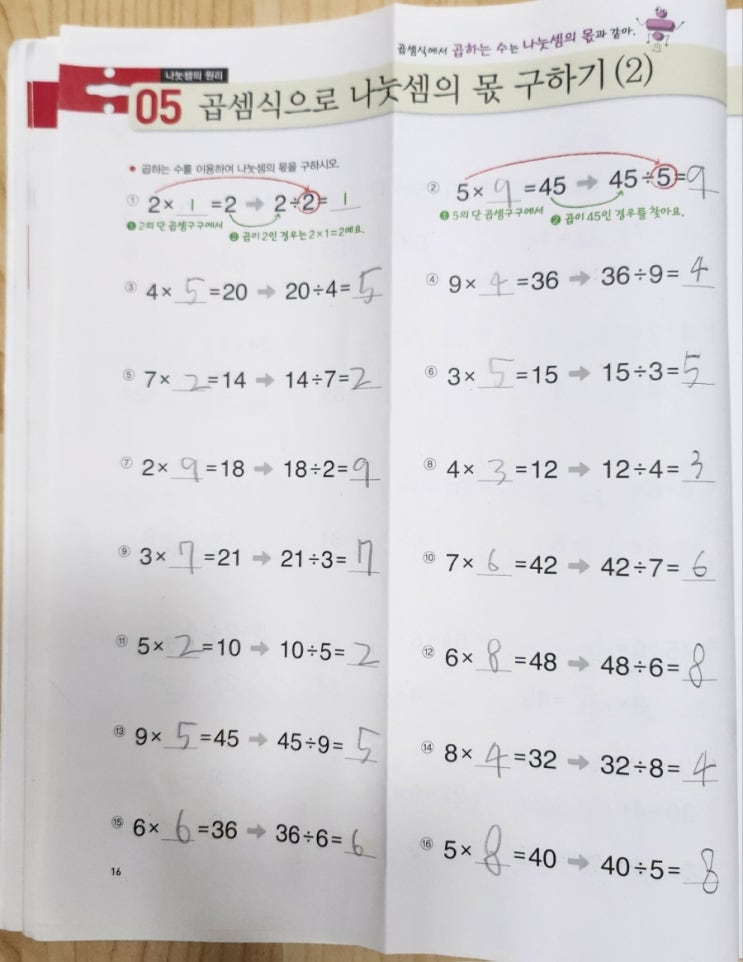 곱셈식에서 곱하는 수는 나눗셈의 몫과 같아.
나눗셈의 원리
05 곱셈식으로 나눗셈의 몫 구하기 (2)
• 곱하는 수를 이용하여 나눗셈의 몫을 구하시오.
① 2× 1 =2 → 2÷2= 1
❶ 2의 단 곱셈구구에서
❷ 곱이 2인 경우는 2×1=2예요.
② 5× 9 =45 → 45÷5= 9
❶ 5의 단 곱셈구구에서 ❷ 곱이 45인 경우를 찾아요.
③ 4× 5 =20 → 20÷4= 5
④ 9× 4 =36 → 36÷9= 4
⑤ 7× 2 =14 → 14÷7= 2
⑥ 3× 5 =15 → 15÷3= 5
⑦ 2× 9 =18 → 18÷2= 9
⑧ 4× 3 =12 → 12÷4= 3
⑨ 3× 7 =21 → 21÷3= 7
⑩ 7× 6 =42 → 42÷7= 6
⑪ 5× 2 =10 → 10÷5= 2
⑫ 6× 8 =48 → 48÷6= 8
⑬ 9× 5 =45 → 45÷9= 5
⑭ 8× 4 =32 → 32÷8= 4
⑮ 6× 6 =36 → 36÷6= 6
⑯ 5× 8 =40 → 40÷5= 8
16